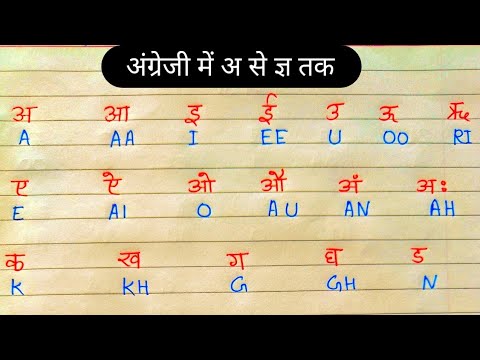 अंग्रेजी में अ से ज्ञ तक
अ आ इ ई उ ऊ ऋ
A AA I EE U OO RI
ए ऐ ओ औ अं अः
E AI O AU AN AH
क ख ग घ ड
K KH G GH N